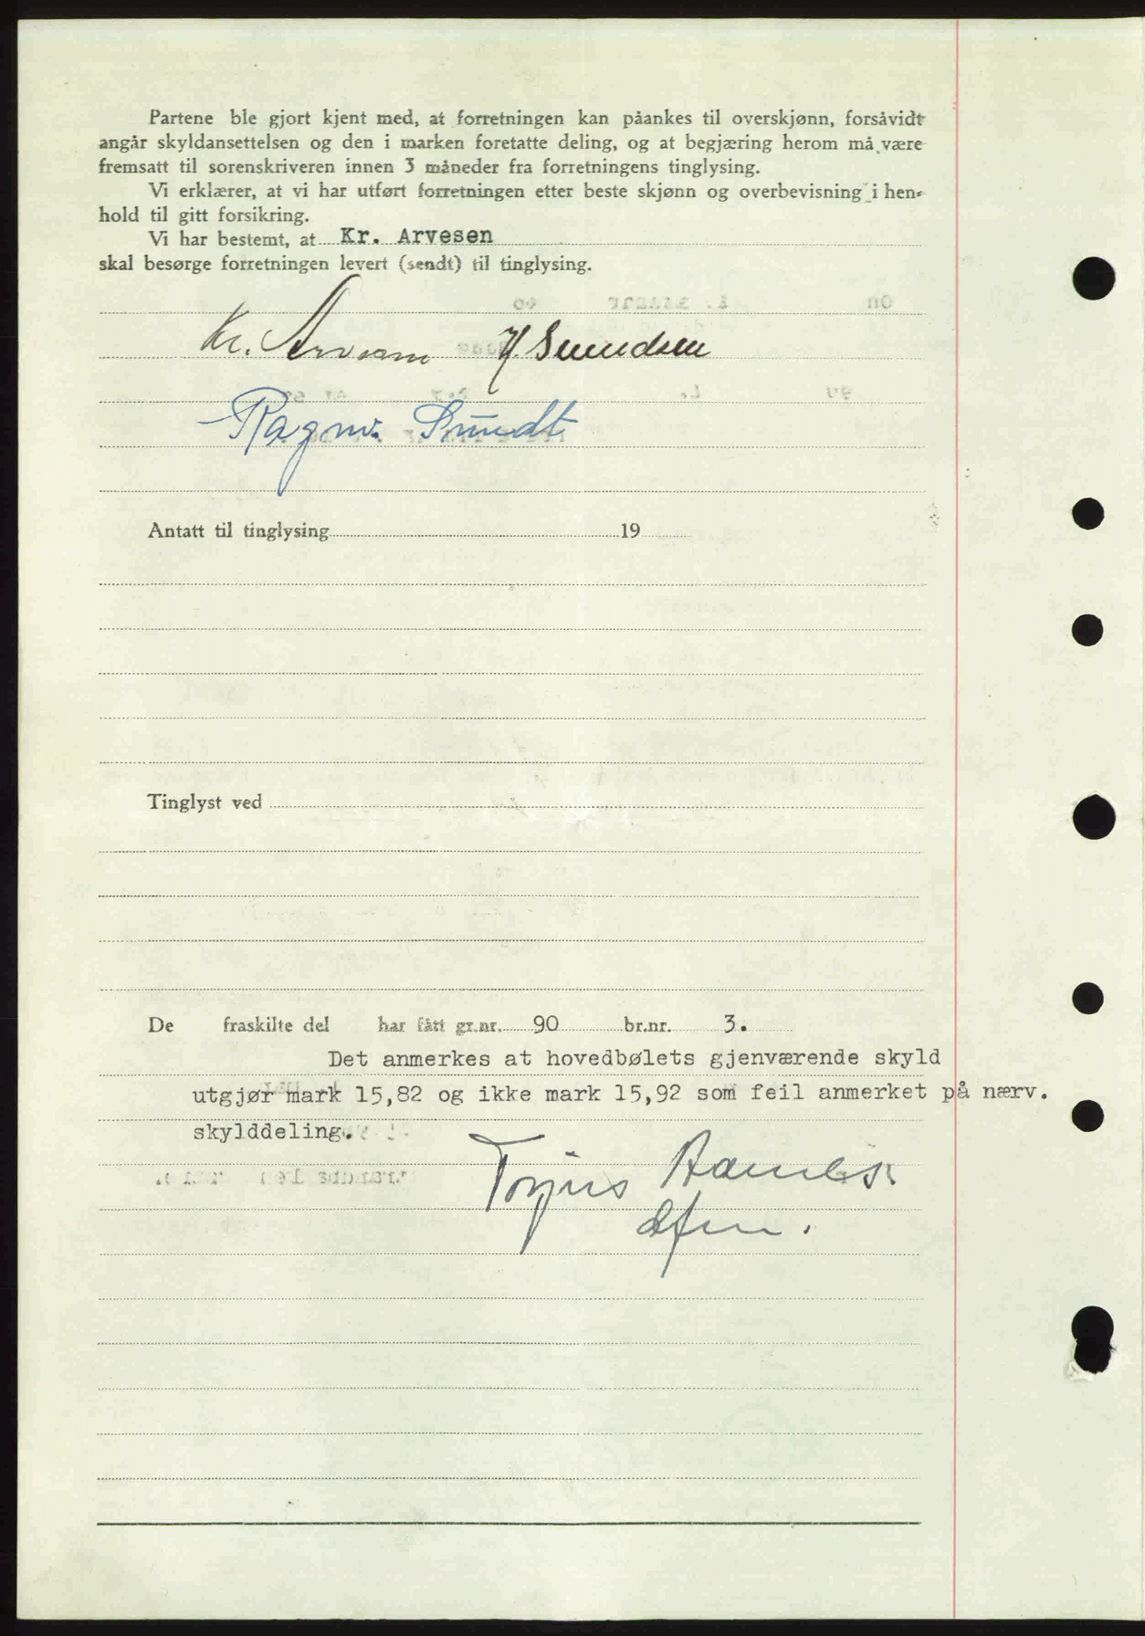 Partene ble gjort kjent med, at forretningen kan påankes til overskjønn, forsåvidt
angår skyldansettelsen og den i marken foretatte deling, og at begjæring herom må være
fremsatt til sorenskriveren innen 3 måneder fra forretningens tinglysing.
Vi erklærer, at vi har utført forretningen etter beste skjønn og overbevisning i hen-
hold til gitt forsikring.
Vi har bestemt, at Kr. Arvesen
skal besørge forretningen levert (sendt) til tinglysing.
Kr. Arvesen
Ragnv. Smudt
Antatt til tinglysing 19
Tinglyst ved
De fraskilte del har fått gr.nr. 90 br.nr. 3.
Det anmerkes at hovedbølets gjenværende skyld
utgjør mark 15,82 og ikke mark 15,92 som feil anmerket på nærv.
skylddeling.
Torjus